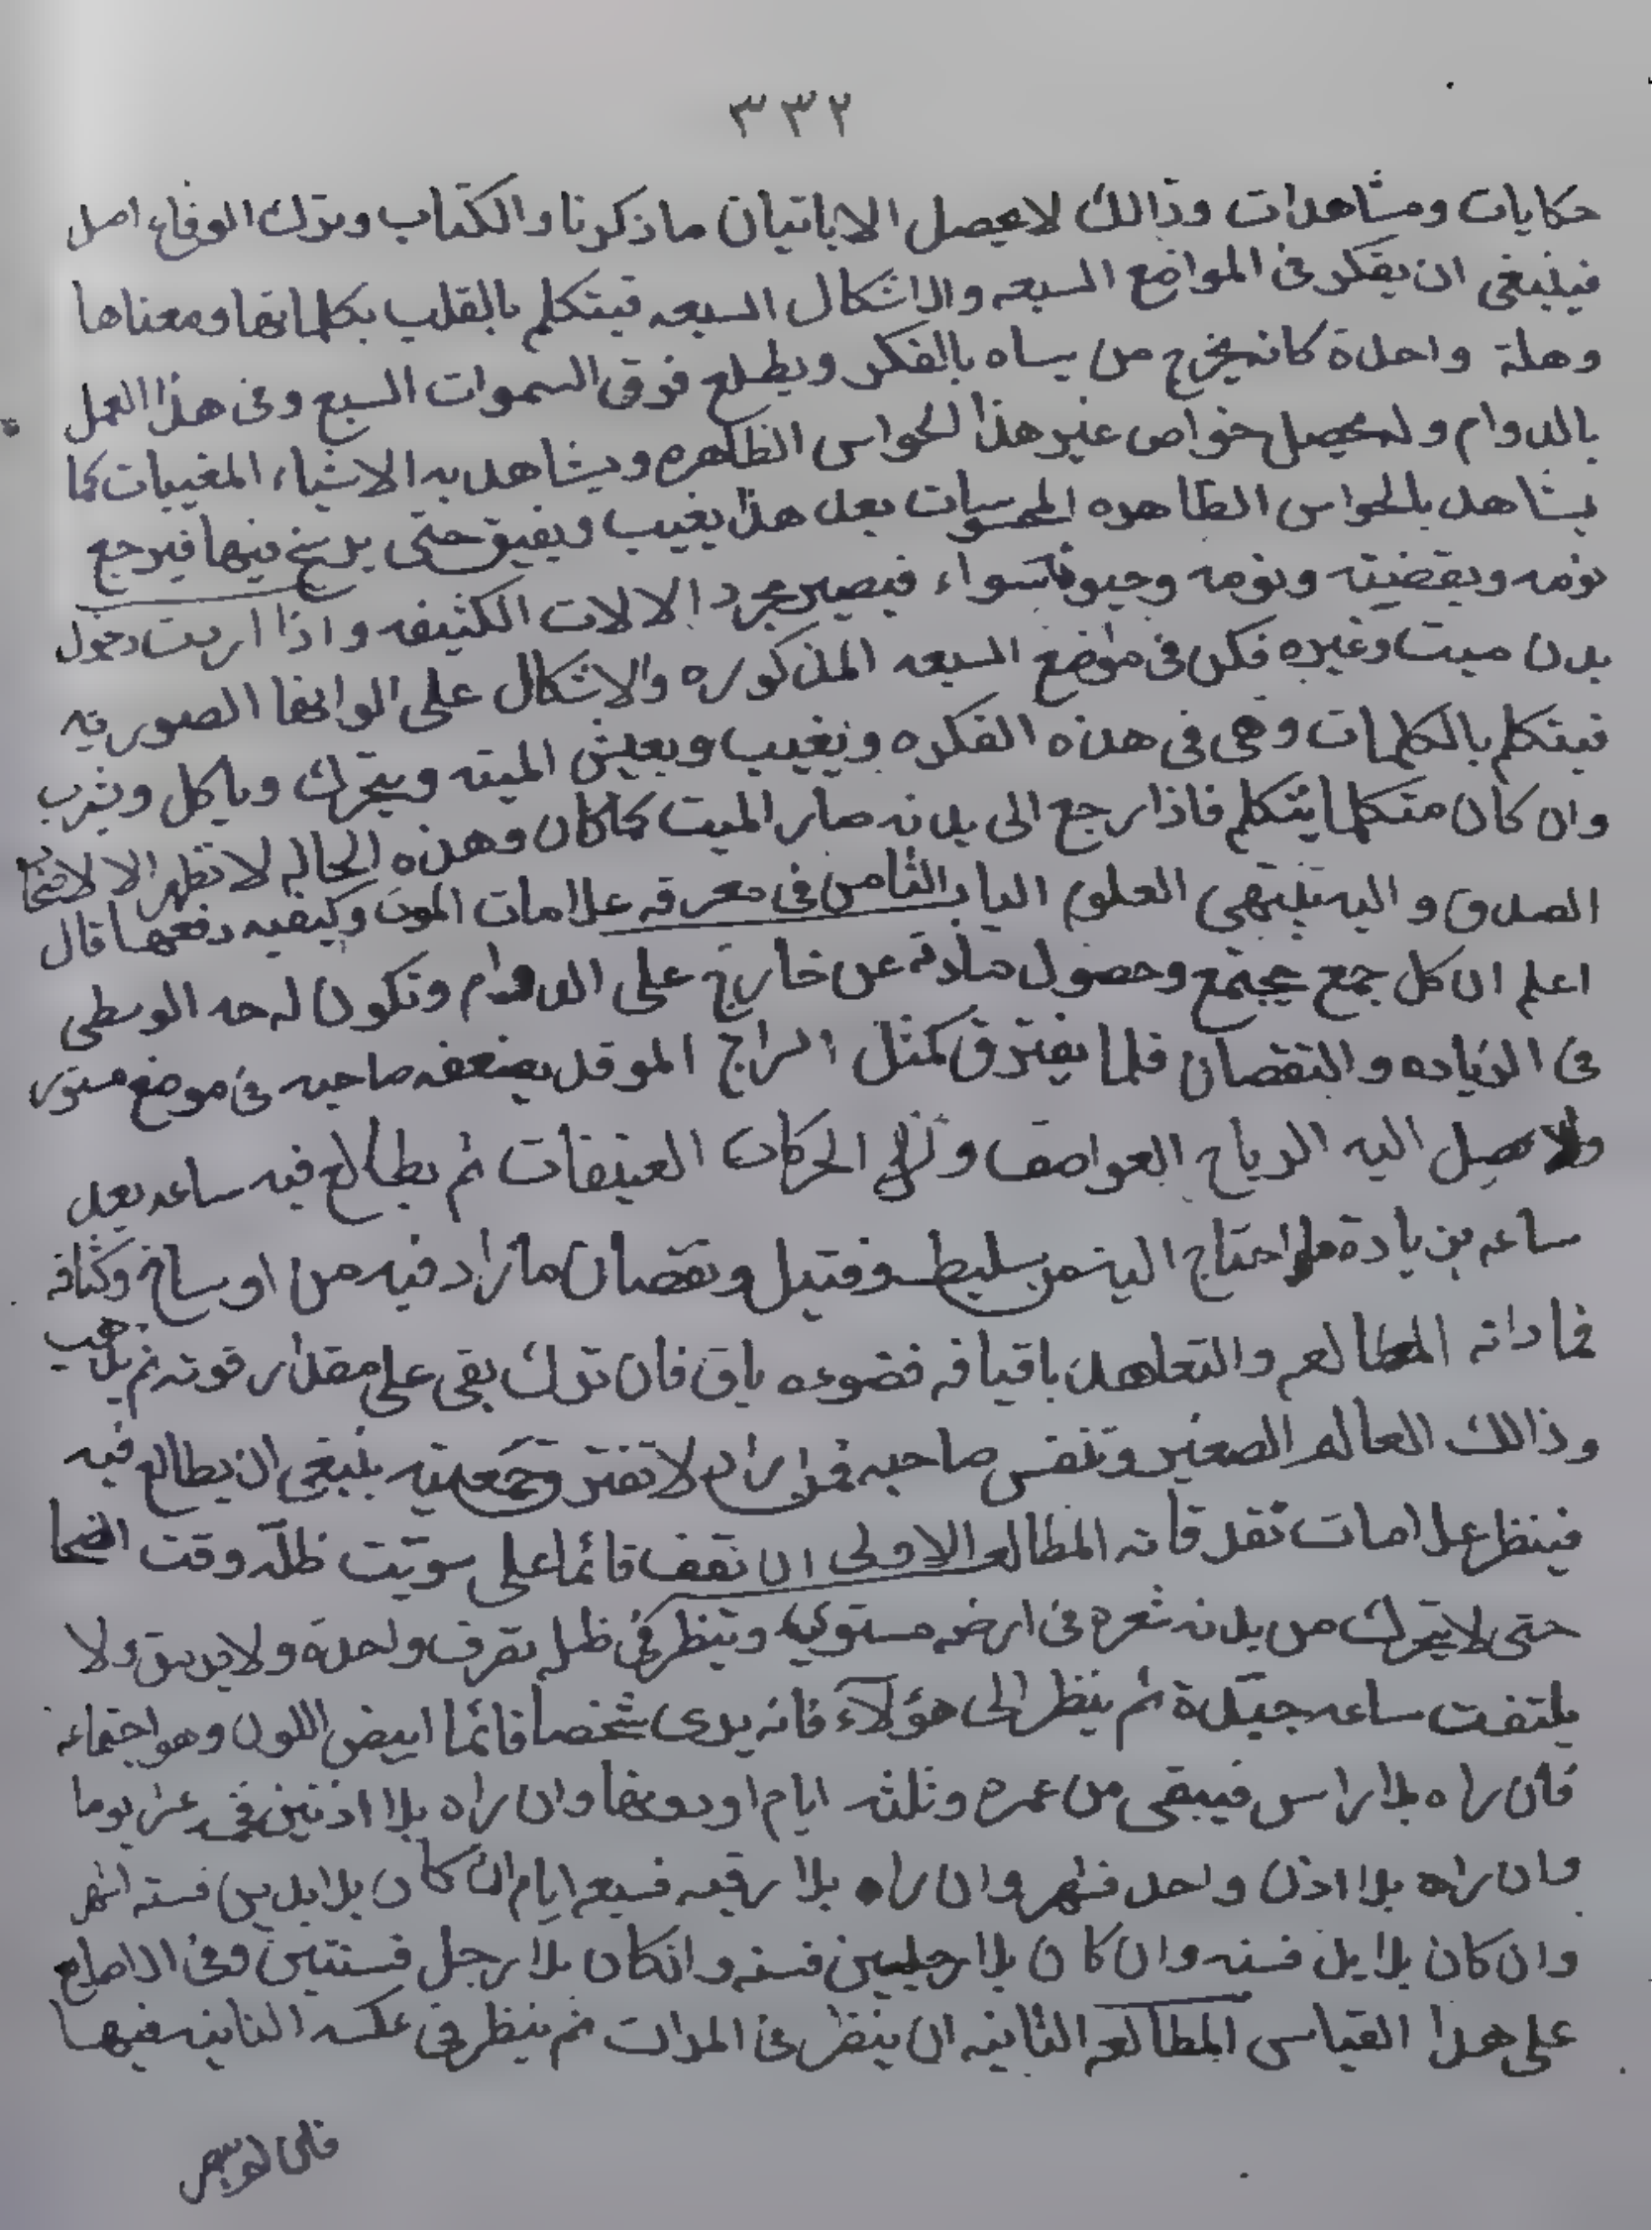 ٣٣٢
حكايات ومشاهدات وذالك لا يحصل الا باتيان ما ذكرنا والكتاب وترك الوفاء اصل
فينبغى ان يفكر فى المواضع السبعه والاشكال السبعه فيتكلم بالقلب بكلماتها ومعناها
وهلة واحدة كانه يخرج من بساه بالفكر ويطلع فوق السموات السبع وفى هذا العمل
بالدوام وله يحصل خواص غير هذا الحواس الظاهره ويشاهد به الاشياء المغيبات كما
يشاهد بالحواس الظاهره المحسوسات بعد هذا يغيب ويفيق حتى يرسخ فيها فيرجع
نومه ويقضيته ونومه وحيوة سواء فيصير مجرد الالات الكثيفه واذا اردت دخول
بدن ميت وغيره فكن فى مواضع السبعه المذكوره والاشكال على الوانها الصوريه
فيتكلم بالكلمات وهى فى هذه الفكره ويغيب ويعيش الميته ويتحرك وياكل ويشرب
وان كان متكلما يتكلم فاذا رجع الى بدنه صار الميت كما كان وهذه الحاله لا تظهر الا لاصحاب
الصدق و اليه ينتهى العلوم الباب الثامن فى معرفه علامات الموت وكيفيه دفعها قال
اعلم ان كل جمع يجتمع وحصول مادته عن خارج على الدوام وتكون له حد الوسطى
فى الزياده والنقصان فلما يفترق كمثل السراج الموقد يضعفه صاحبه فى موضع مستور
ولا تصل اليه الرياح العواصف و الحركات العنيفات ثم يطالع فيه ساعه بعد
ساعه بزيادة ما احتاج اليه من سليط وفتيل ونقصان ما زاد فيه من اوساخ وكثافه
فما دامه المطالعه والتعاهد باقيا فه فضوءه باق فان ترك بقى على مقدار قوته ثم يذهب
وذالك العالم الصغير وتنفس صاحبه فمن اراد لا تفترق جمعيته ينبغى ان يطالع فيه
فينظر علامات تقدقاته المطالعه الاولى ان تقف قائما على سويّت ظله وقت الضحا
حتى لا يتحرك من بدنه شعره فى ارض مستويه وينظر فى ظله بقرف واحدة ولا يريق ولا
يلتفت ساعه جيّدة ثم ينظر الى هؤلآء فانه يرى شخصا قائما ابيض اللون وهو اجتماعه
فان راه بلا راس فيبقى من عمره وثلثه ايام او دونها وان راه بلا اذنين فخمسه عشر يوما
وان راه بلا اذن واحد فشهر وان راه بلا رقبه فسبعه ايام ان كان بلا يدين فسته اشهر
وان كان بلا يد فسنه وان كان بلا رجليين فسنه وانكان بلا رجل فسنتين وفى الاصابع
على هذا القياس المطالعه الثانيه ان ينظر فى المرات ثم ينظر فى عكسه الثانيه فيها